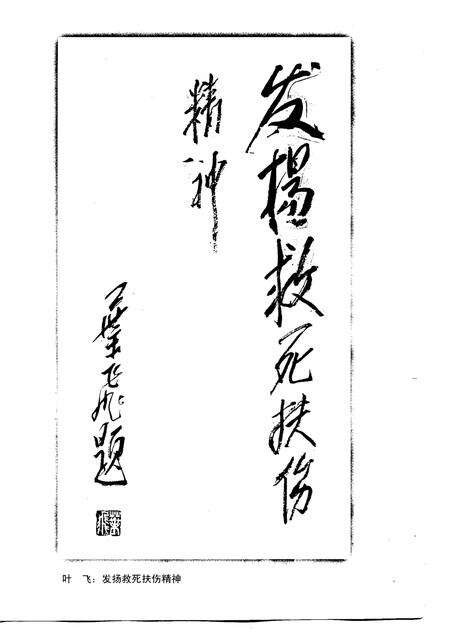 发揚救死扶伤
精神
葉飛题
叶　飞：发扬救死扶伤精神